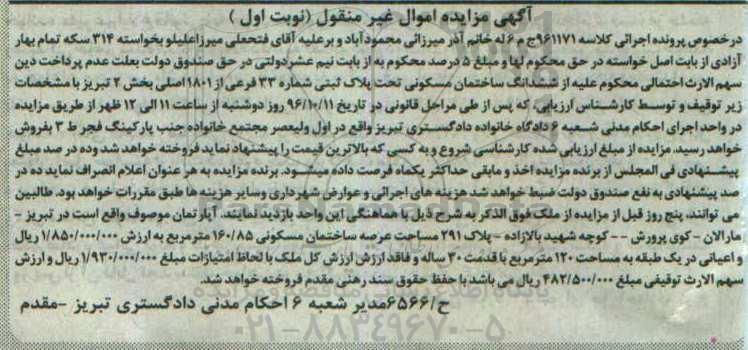 آگهی مزایده اموال غیر منقول (نوبت اول )
درخصوص پرونده اجرائی کلاسه ۹۶۱۱۷۱ج م ۶ له خانم آذر میرزائی محمودآباد و برعلیه آقای فتحعلی میرزاعلیلو بخواسته ۳۱۴ سکه تمام بهار
آزادی از بابت اصل خواسته در حق محکوم لها و مبلغ ۵ درصد محکوم به از بابت نیم عشردولتی در حق صندوق دولت بعلت عدم پرداخت دین
سهم الارث احتمالی محکوم علیه از ششدانگ ساختمان مسکونی تحت پلاک ثبتی شماره ۳۳ فرعی از ۱۸۰۱ اصلی بخش ۲ تبریز با مشخصات
زیر توقیف و توسط کارشناس ارزیابی، که پس از طی مراحل قانونی در تاریخ ۹۶/۱۰/۱۱ روز دوشنبه از ساعت ۱۱ الی ۱۲ ظهر از طریق مزایده
در واحد اجرای احکام مدنی شعبه ۶ دادگاه خانواده دادگستری تبریز واقع در اول ولیعصر مجتمع خانواده جنب پارکینگ فجر ط ۳ بفروش
خواهد رسید. مزایده از مبلغ ارزیابی شده کارشناسی شروع و به کسی که بالاترین قیمت را پیشنهاد نماید فروخته خواهد شد وده در صد مبلغ
پیشنهادی فی المجلس از برنده مزایده اخذ و مابقی حداکثر یکماه فرصت داده میشود. برنده مزایده به هر عنوان اعلام انصراف نماید ده در
صد پیشنهادی به نفع صندوق دولت ضبط خواهد شد هزینه های اجرائی و عوارض شهرداری وسایر هزینه ها طبق مقررات خواهد بود. طالبین
می توانند، پنج روز قبل از مزایده از ملک فوق الذکر به شرح ذیل با هماهنگی این واحد بازدید نمایند. آپارتمان موصوف واقع است در تبریز -
مارالان - کوی پرورش -- کوچه شهید بالازاده - پلاک ۲۹۱ مساحت عرصه ساختمان مسکونی ۱۶۰/۸۵ مترمربع به ارزش ۱/۸۵۰/۰۰۰/۰۰۰ ریال
و اعیانی در یک طبقه به مساحت ۱۲۰ مترمربع با قدمت ۳۰ ساله و فاقد ارزش ارزش کل ملک با لحاظ امتیازات مبلغ ۱/۹۳۰/۰۰۰/۰۰۰ ریال و ارزش
سهم الارث توقیفی مبلغ ۴۸۲/۵۰۰/۰۰۰ ریال می باشد با حفظ حقوق سند رهنی مقدم فروخته خواهد شد.
ح/۶۵۶۶ مدیر شعبه ۶ احکام مدنی دادگستری تبریز -مقدم
۰۲۱-۸۸۳۴۹۶۷۰-۵